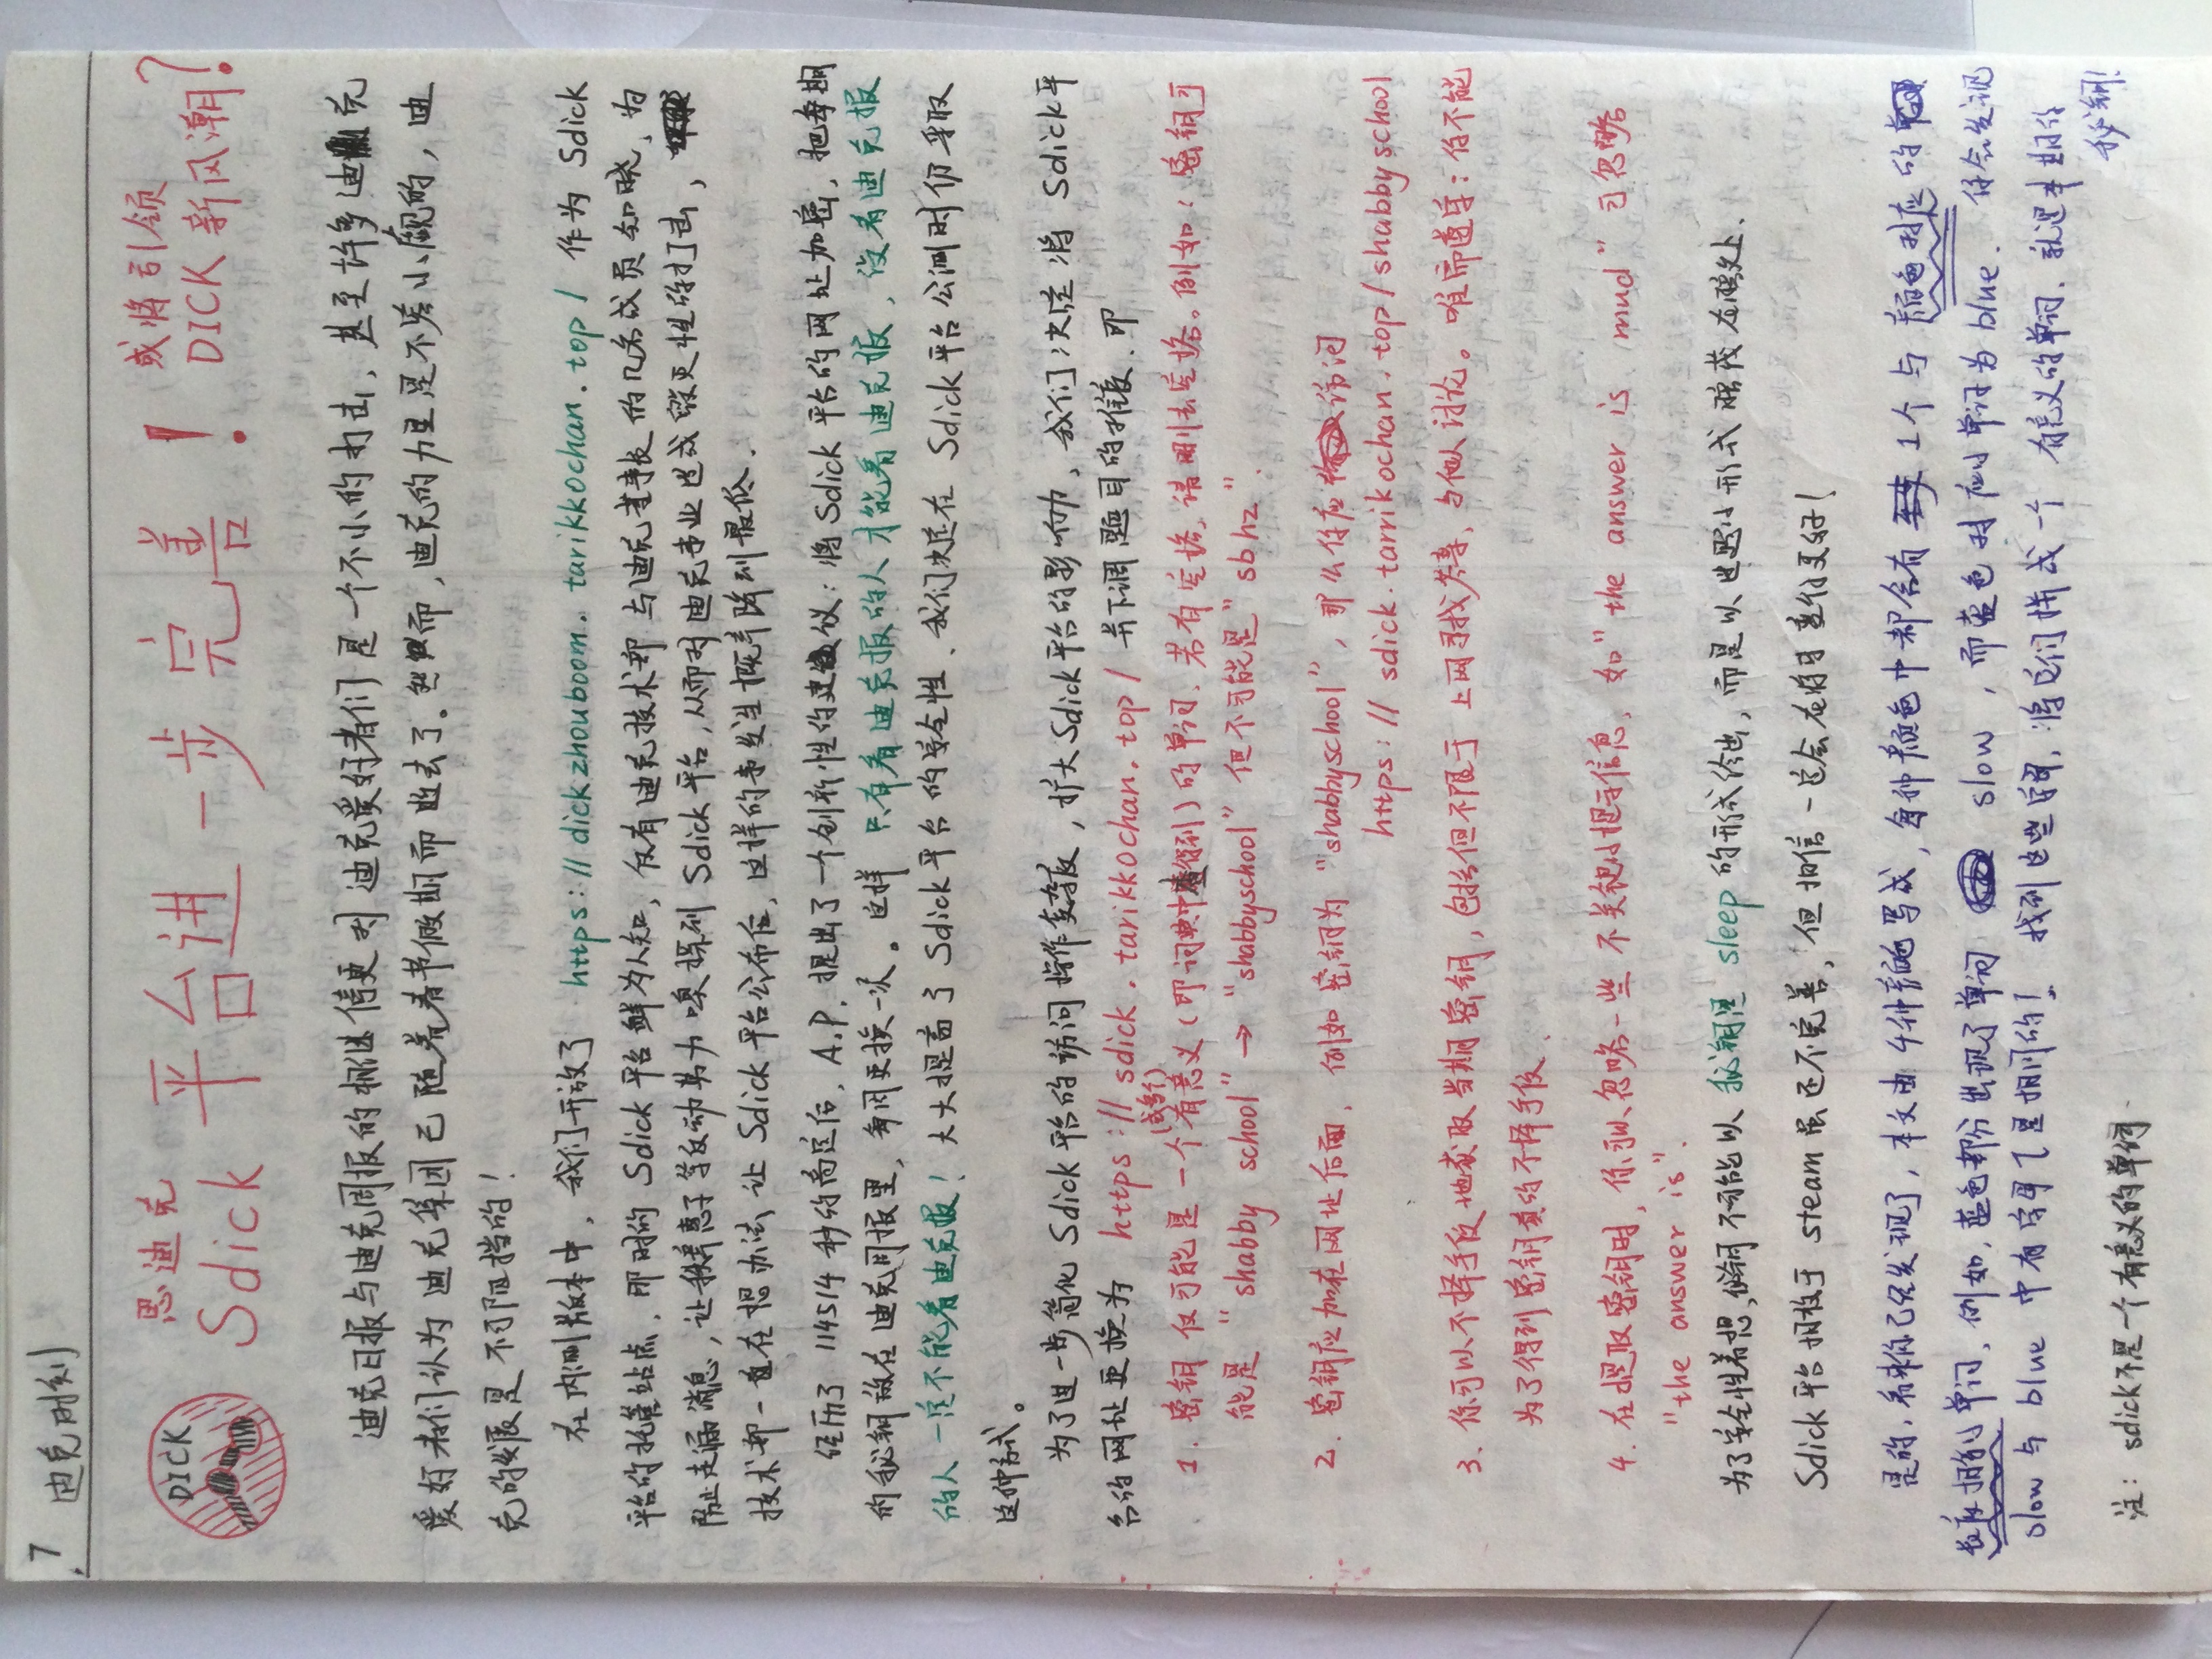 7 迪克时刻
DICK
思迪克
Sdick 平台进一步完善！
或将引领
DICK 新风潮？
迪克日报与迪克周报的相继停更对迪克爱好者们是一个不小的打击，甚至许多迪克
爱好者们认为迪克集团已随着春节假期而逝去了。然而，迪克的力量是不容小觑的，迪
克的发展是不可阻挡的！
在内测版本中，我们开放了 https://dickzhouboom.tarikkochan.top/ 作为 Sdick
平台的托管站点，那时的 Sdick 平台鲜为人知，仅有迪克技术部与迪克董事长的几名成员知晓，为
防止走漏消息，让秩序惠子等反动势力嗅探到 Sdick 平台，从而对迪克事业造成毁灭性的打击，
技术部一直在想办法让 Sdick 平台公布后，这样的事发生概率降到最低．
经历了 114514 秒的商定后，A.P. 提出了一个创新性的建议：将 Sdick 平台的网址加密，把每期
的秘钥放在迪克周报里，每周更换一次。这样 只有看迪克报的人才能看迪克报，没看迪克报
的人一定不能看迪克报！大大提高了 Sdick 平台的安全性．我们决定在 Sdick 平台公测时仍采取
这种方式。
为了进一步简化 Sdick 平台的访问操作复杂度，扩大 Sdick 平台的影响力，我们决定将 Sdick 平
台的网址更换为 https://sdick.tarikkochan.top/ 并下调题目的难度．即
1. 密钥仅可能是一个(或多个)有意义（即词典中查得到）的单词．若有空格，请删去空格。例如：密钥可
能是 "shabby school" → "shabbyschool" 但不可能是 "sbhz".
2. 密钥应加在网址后面，例如密钥为 "shabbyschool"，那么你应访问
https://sdick.tarrikochan.top/shabbyschool
3. 你可以不择手段地获取当期密钥，包括但不限于上网寻找答案，与他人讨论。唯需遵守：你不能
为了得到密钥真的不择手段．
4. 在提取密钥时，你可以忽略一些不关键小提示信息，如 "the answer is mud" 可忽略
"the answer is".
为了安全性着想，秘钥不可能以 秘钥是 sleep 的形式给出，而是以谜题小形式隐藏在文上．
Sdick 平台相较于 steam 虽还不完善，但相信一定会在将来变得更好！
是的，看来你已经发现了，本文由4种颜色写成，每种颜色中都含有1个与颜色对应的
长度相同单词，例如，蓝色部分出现了单词 slow，而蓝色对应小单词为 blue．你会发现
slow 与 blue 中有字母 l 是相同的！找到这些字母，将它们拼成一个有意义的单词．就是本期的
秘钥！
注：sdick不是一个有意义的单词．